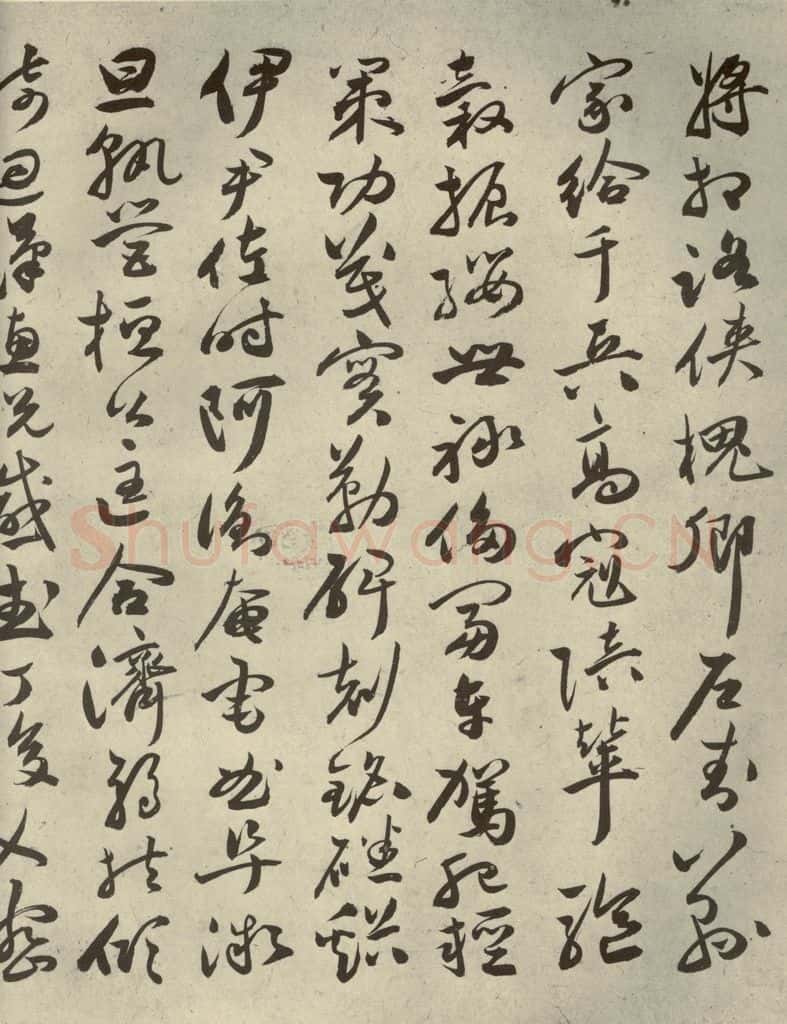 將相路俠槐卿户封八縣
家給千兵高冠陪輦驅
轂振纓世祿侈富車駕肥輕
策功茂實勒碑刻銘磻溪
伊尹佐時阿衡奄宅曲阜微
旦孰營桓公匡合濟弱扶傾
迴漢惠說感武丁俊乂密
Shufawang.CN